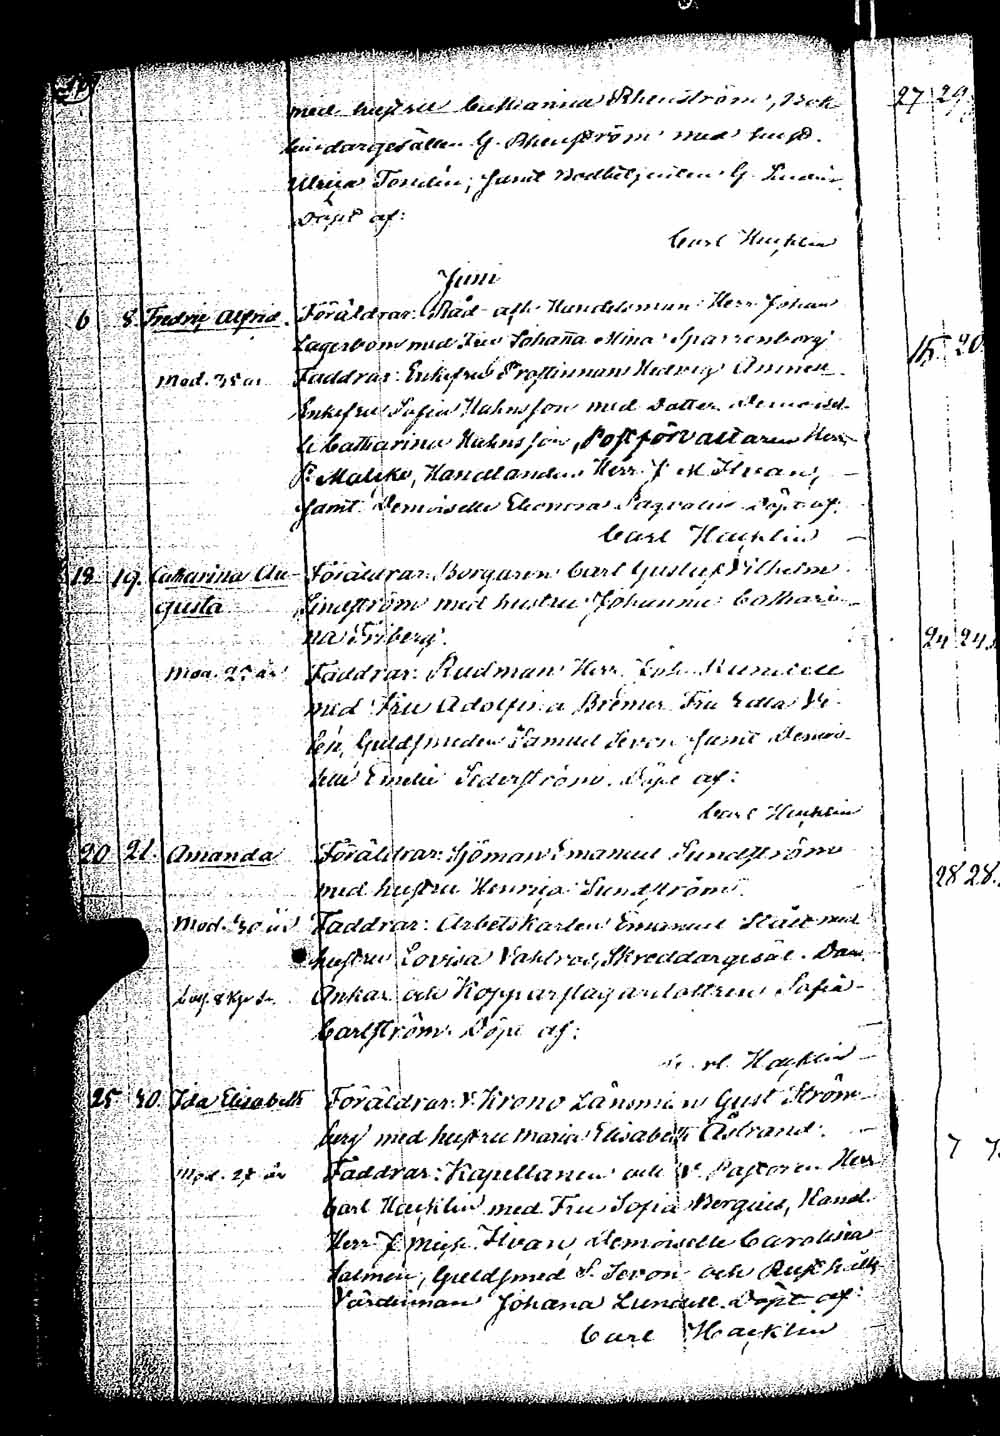 med hustru Catharina Rhenström, Bok
bindargesällen G. Rhenström med hust.
Ulrica Tondin, samt Bodbetjenten G. Lundin
Döpt af:
Carl Hacklin
27 29
Juni
6 8. Fredric Alfrid. Föräldrar: Råd- och Handelsman Herr Johan
Lagerbom med Fru Johanna Mina Sparrenborg
15 20
Mod. 35 år Faddrar: Enkefru Prostinnan Hedvig
Enkefru Sofia Hahnsson med Dotter Demoisel-
le Catharina Hahnsson, Postförvaltaren Herr
P. Maleko, Handlanden Herr J. M. Ilvan,
samt Demoiselle Eleonora Döpt af
Carl Hacklin
18 19. Catharina Au- Föräldrar: Borgaren Carl Gustaf Vilhelm
gusta Lindström med hustru Johanna Cathari-
na Friberg.
24 24
Mod. 27 år Faddrar: Rådman Herr Joh.
med Fru Adolfina Bremer Fru Edla
Guldsmeden Samuel Levon samt Demoi-
selle Emelie Söderström. Döpt af:
Carl Hacklin
20 21 Amanda Föräldrar: Sjöman Emanuel Sundström
med hustru Henrica Sundström.
28 28.
Mod. 30 år Faddrar: Arbetskarlen Emanuel med
hustru Lovisa Vahlroos, Skreddargesäl.
Ankar och Kopparslagardottren Sofia
Carlström. Döpt af:
Carl Hacklin
25 30 Ida Elisabeth Föräldrar: V. Krono Länsman Gust Ström-
berg med hustru Maria Elisabeth Åstrand.
7
Mod. 27 år Faddrar: Kapellanen och V. Pastoren Herr
Carl Hacklin med Fru Sofia Bergius, Handl.
Herr J. Mich. Ilvan, Demoiselle Carolina
Salmén, Guldsmed S. Levon och
Värdinnan Johana Lundell. Döpt af:
Carl Hacklin